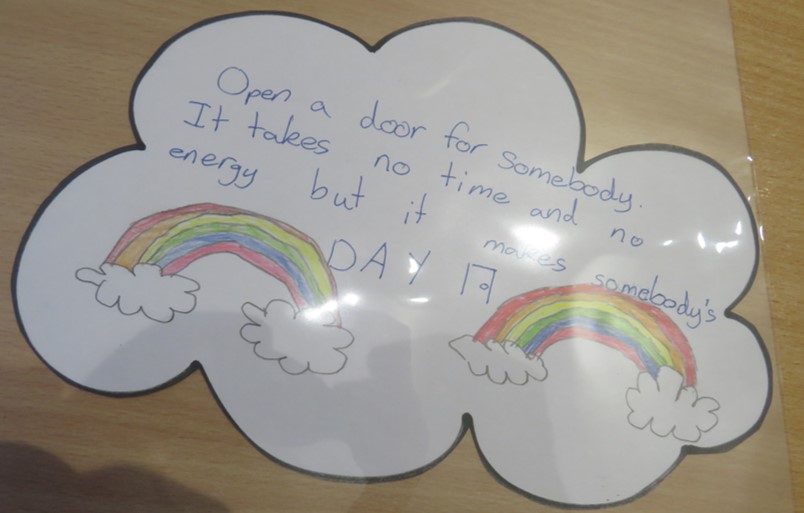 Open a door for somebody.
It takes no time and no
energy but it makes somebody's
DAY